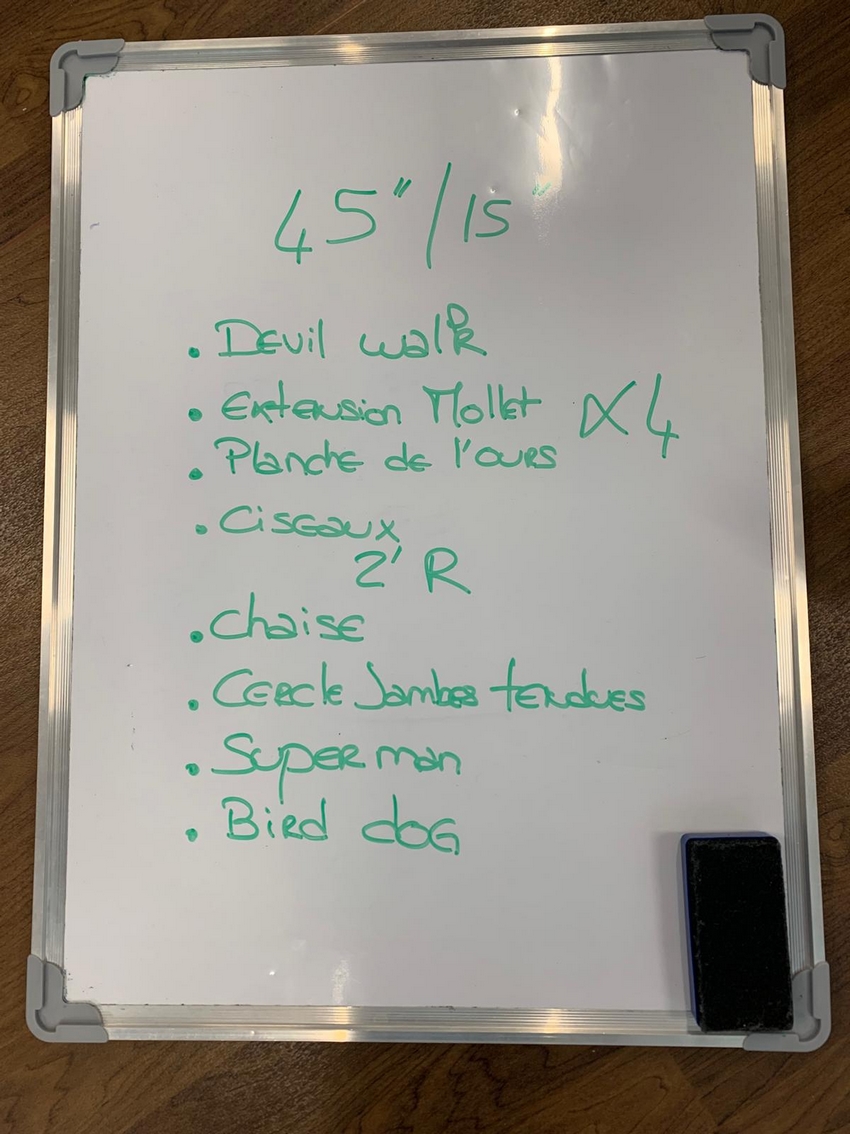 45"/15"
. Devil walk
. Extension Mollet x4
. Planche de l'ours
. Ciseaux
2' R
. Chaise
. Cercle Jambes tendues
. Superman
. Bird dog